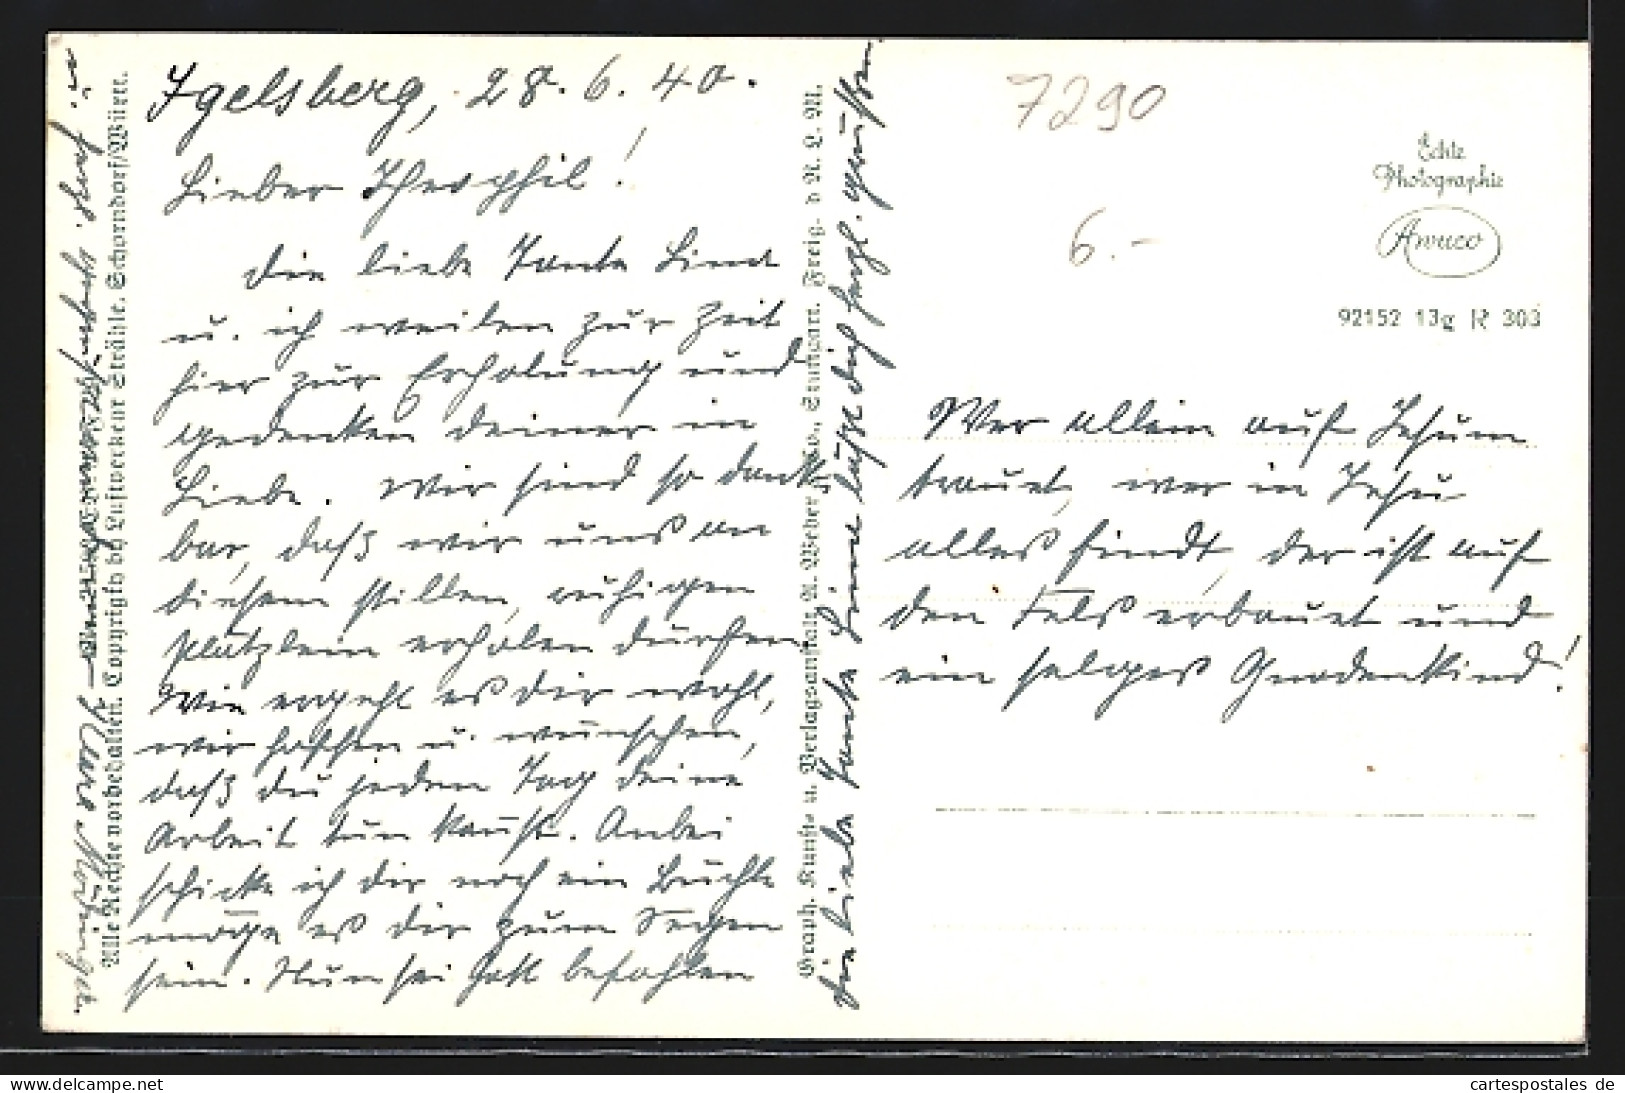 Igelsberg, 28.6.40.
Lieber Theophil!
Die liebe Tante Lina
u. ich weilen zur Zeit
hier zur Erholung und
gedenken deiner in
Liebe. Wir sind so dank-
bar, daß wir uns an
diesem stillen, ruhigen
Plätzlein erholen dürfen
Wie ergeht es dir wohl,
wir hoffen u. wünschen,
daß du jeden Tag deine
Arbeit tun kannst. Anbei
schicke ich dir noch ein Büchle
möge es dir zum Segen
sein. Nun sei Gott befohlen
u. herzl. gegrüßt
Die liebe Tante Lina läßt dich herzl. grüßen.
Alle Rechte vorbehalten. Copyright by Luftverkehr Strähle, Schorndorf/Württ.
Graph. Kunst- u. Verlagsanstalt A. Weber & Co., Stuttgart. Freig. d. R. L. M.
7290
6.-
Echte
Photographie
Awuco
92152 13g R 303
Wer allein auf Jesum
trauet, wer in Jesu
alles findt, der ist auf
den Fels erbauet und
ein selges Gnadenkind!
https://www.ansichtskarten-lexikon.de
cartespostales de